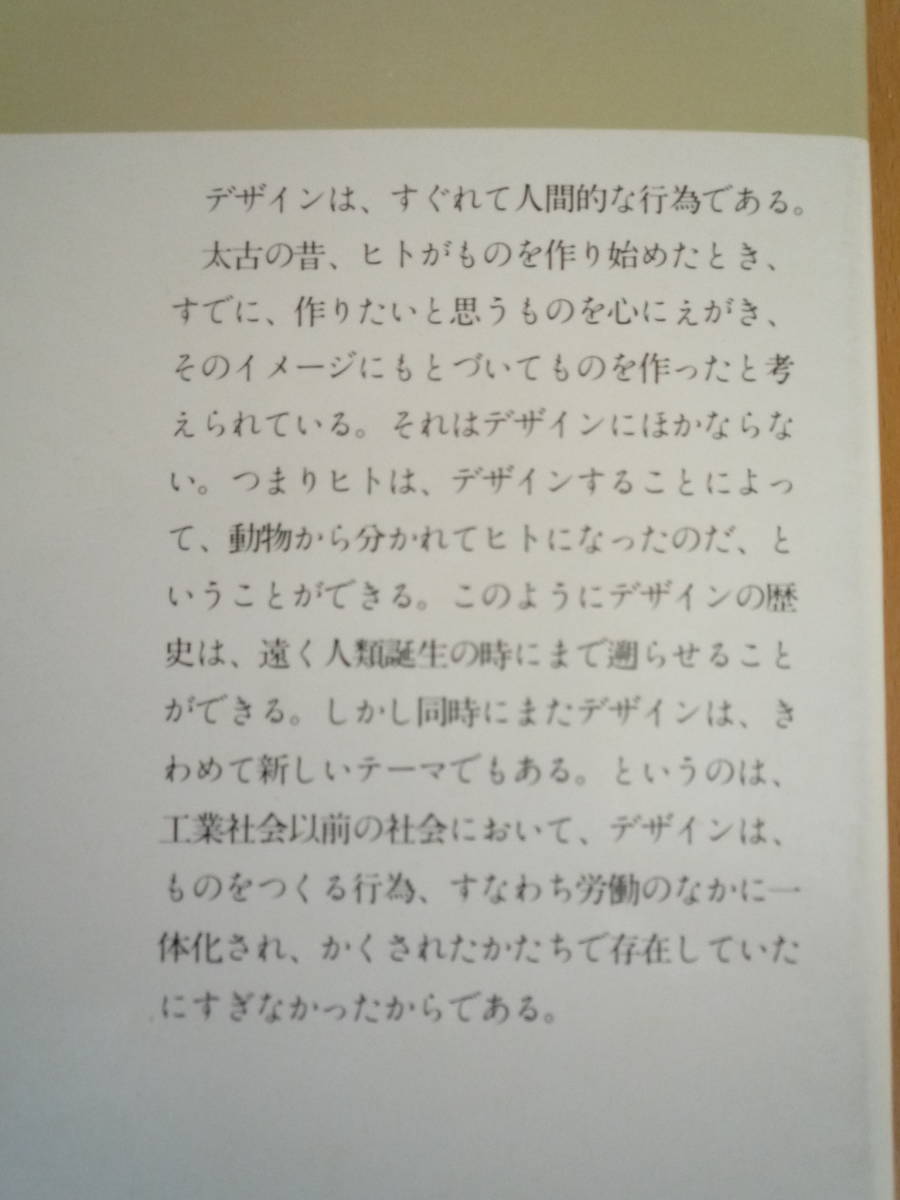 デザインは、すぐれて人間的な行為である。
太古の昔、ヒトがものを作り始めたとき、
すでに、作りたいと思うものを心にえがき、
そのイメージにもとづいてものを作ったと考
えられている。それはデザインにほかならな
い。つまりヒトは、デザインすることによっ
て、動物から分かれてヒトになったのだ、と
いうことができる。このようにデザインの歴
史は、遠く人類誕生の時にまで遡らせること
ができる。しかし同時にまたデザインは、き
わめて新しいテーマでもある。というのは、
工業社会以前の社会において、デザインは、
ものをつくる行為、すなわち労働のなかに一
体化され、かくされたかたちで存在していた
にすぎなかったからである。